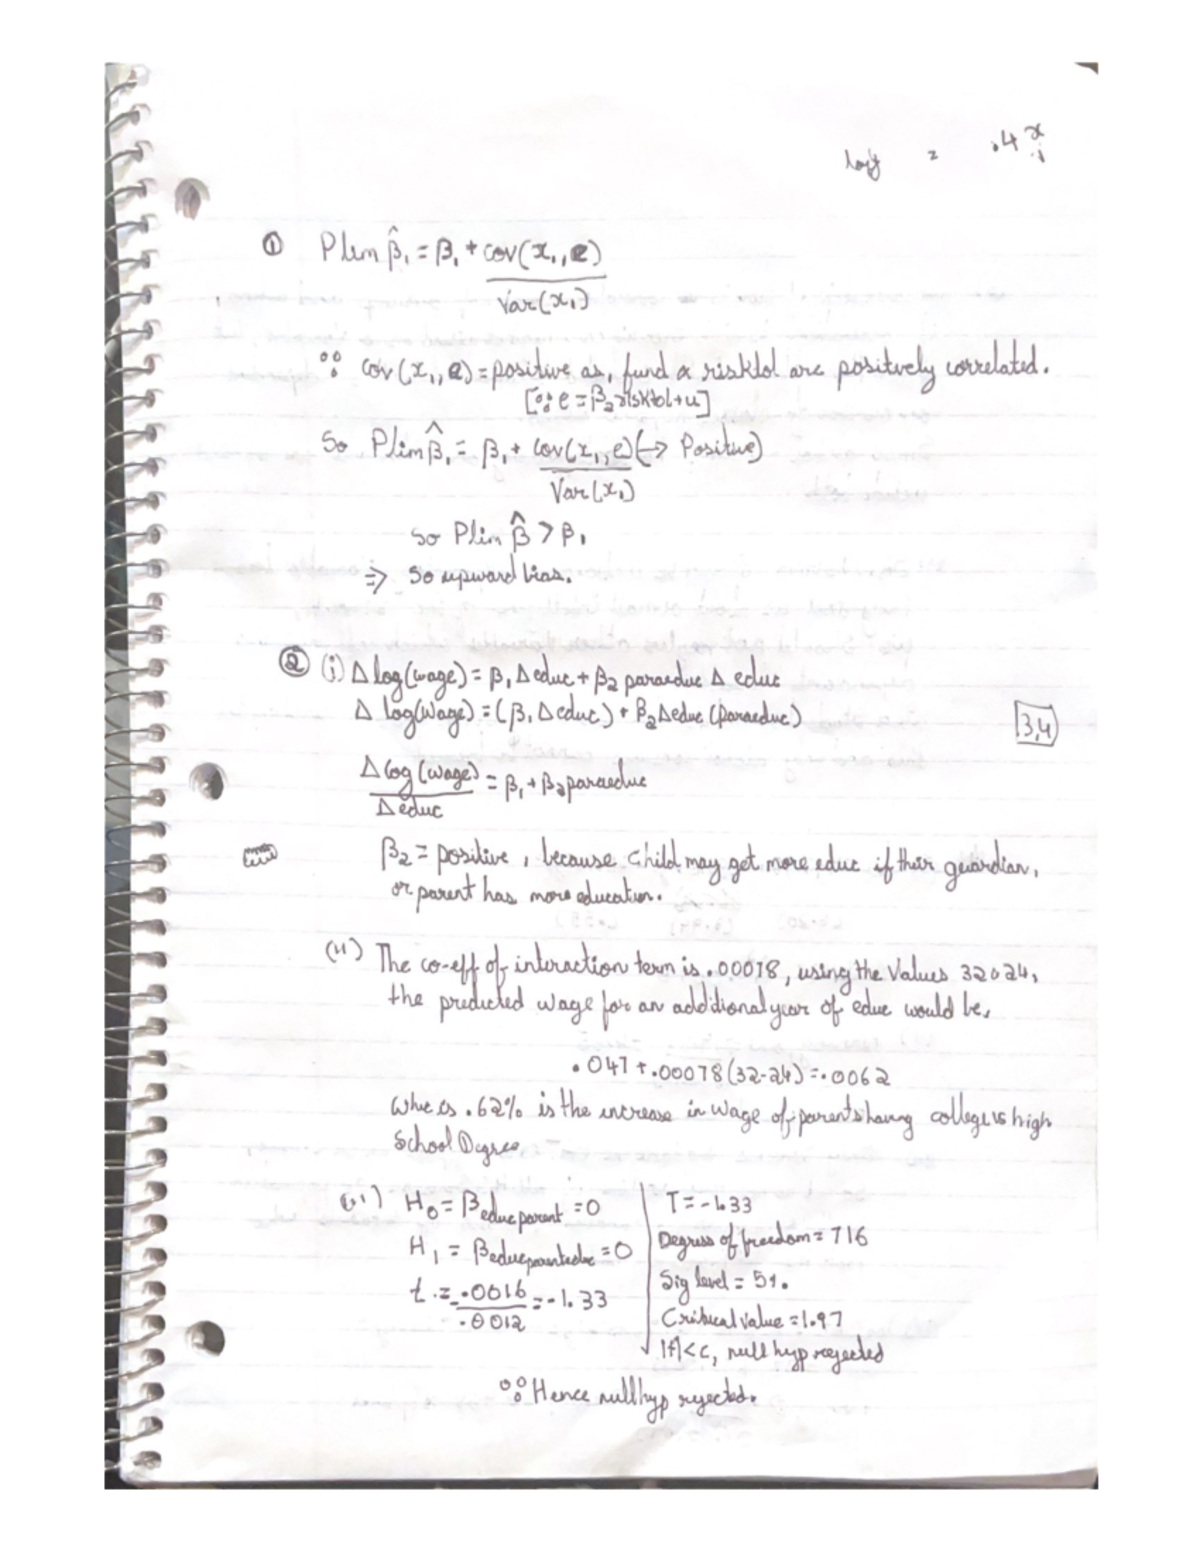 log = .4
① Plim β̂₁ = β₁ + cov(x₁, e)
Var(x₁)
∵ cov(x₁, e) = positive as, fund & risktol are positively correlated.
[∵ e = β₂risktol + u]
So Plim β̂₁ = β₁ + cov(x₁, e) (→ Positive)
Var(x₁)
So Plim β̂ > β₁
⇒ So upward bias.
② (i) Δ log(wage) = β₁ Δ educ + β₂ pareduc Δ educ
Δ log(wage) = (β₁ Δ educ) + β₂ Δ educ (pareduc)
3,4
Δ log(wage) = β₁ + β₂ pareduc
Δ educ
β₂ = positive, because child may get more educ if their guardian,
or parent has more education.
(ii) The co-eff of interaction term is .00078, using the values 32 & 24,
the predicted wage for an additional year of educ would be,
.047 + .00078 (32-24) = .0062
.62% is the increase in wage of parents having college vs high
School Degree
(iii) H₀ = β educ parent = 0
T = -1.33
H₁ = = 0
Degress of freedom = 716
t = -.0016 = -1.33
.0012
Sig level = 5%.
Critical value = 1.97
|t| < c, null hyp rejected
∴ Hence null hyp rejected.